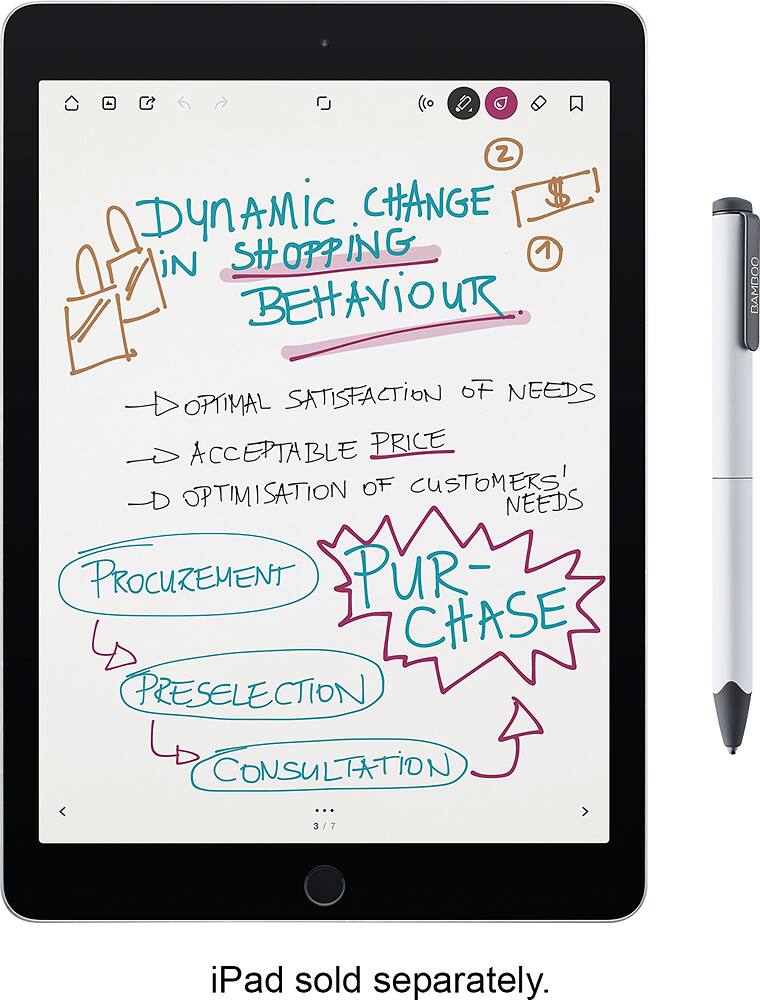 2
DYNAMIC CHANGE
$
IN SHOPPING
1
BEHAVIOUR
OPTIMAL SATISFACTION OF NEEDS
ACCEPTABLE PRICE
OPTIMISATION OF CUSTOMERS'
NEEDS
PROCUREMENT
PUR-
CHASE
PRESELECTION
CONSULTATION
3 / 7
BAMBOO
iPad sold separately.